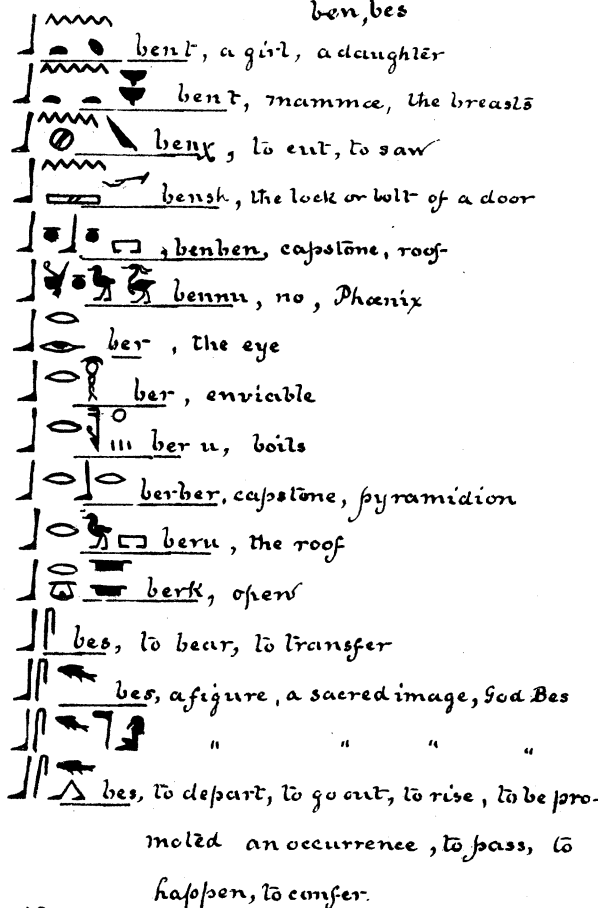 ben, bes
bent, a girl, a daughter
bent, mammæ, the breasts
benχ, to cut, to saw
bensh, the lock or bolt of a door
benben, capstone, roof
bennu, no, Phœnix
ber, the eye
ber, enviable
ber u, boils
berber, capstone, pyramidion
beru, the roof
berk, open
bes, to bear, to transfer
bes, a figure, a sacred image, God Bes
" " " "
bes, to depart, to go out, to rise, to be pro-
moted an occurrence, to pass, to
happen, to confer.